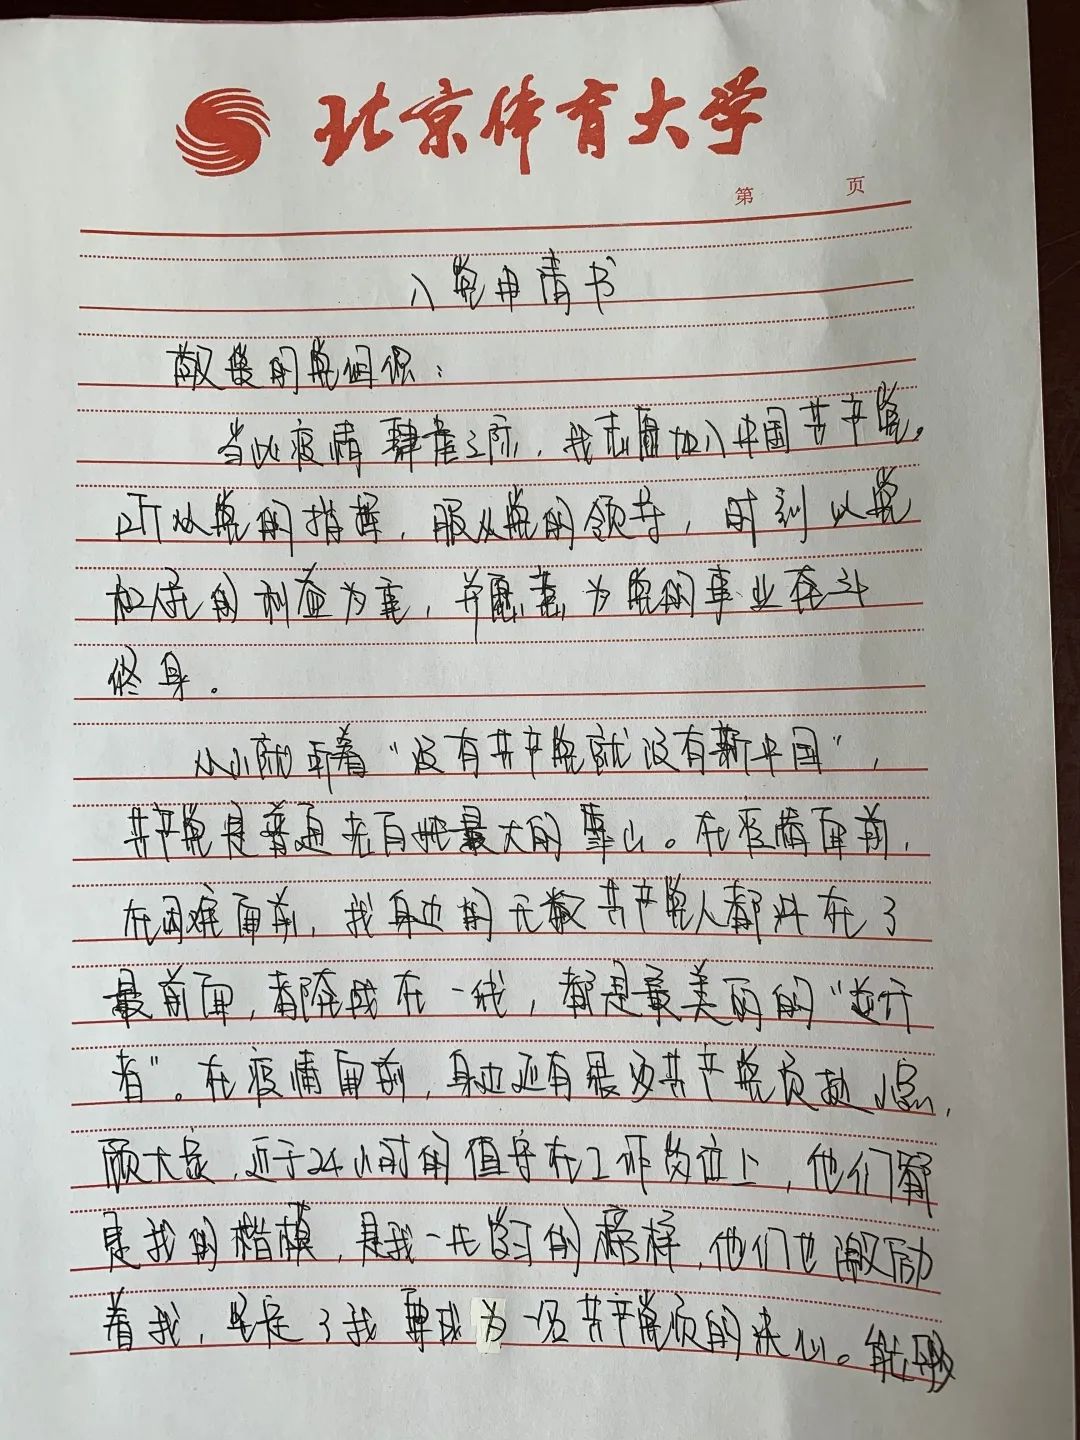 北京体育大学
第 页
入党申请书
敬爱的党组织：
当此疫情肆虐之际，我志愿加入中国共产党，
听从党的指挥，服从党的领导，时刻以党
和人民的利益为重，并愿意为党的事业奋斗
终身。
从小就听着“没有共产党就没有新中国”，
共产党是普通老百姓最大的靠山。在疫情面前，
在困难面前，我身边的无数共产党人都冲在了
最前面，都奋战在一线，都是最美丽的“逆行
者”。在疫情面前，身边还有很多共产党员
顾大家，近于24小时的值守在工作岗位上，他们都
是我的楷模，是我一生学习的榜样，他们也激励
着我，坚定了我要成为一名共产党员的决心。能够